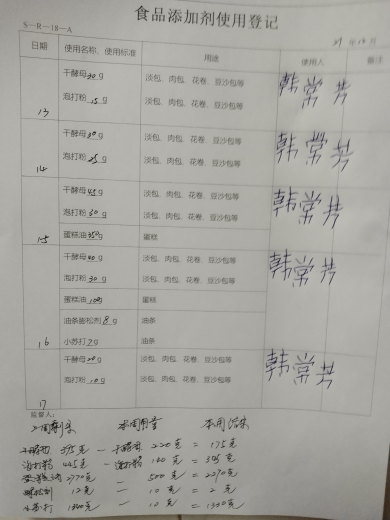 食品添加剂使用登记
S-R-18-A
日期 使用名称、使用标准 用途 使用人 备注
干酵母30g 淡包、肉包、花卷、豆沙包等 韩常芳
泡打粉15g 淡包、肉包、花卷、豆沙包等
13
干酵母80g 淡包、肉包、花卷、豆沙包等 韩常芳
泡打粉25g 淡包、肉包、花卷、豆沙包等
14
干酵母45g 淡包、肉包、花卷、豆沙包等 韩常芳
泡打粉30g 淡包、肉包、花卷、豆沙包等
15 蛋糕油350g 蛋糕
干酵母40g 淡包、肉包、花卷、豆沙包等 韩常芳
泡打粉30g 淡包、肉包、花卷、豆沙包等
蛋糕油 g 蛋糕
油条膨松剂8g 油条
16 小苏打2g 油条
干酵母20g 淡包、肉包、花卷、豆沙包等 韩常芳
泡打粉10g 淡包、肉包、花卷、豆沙包等
17
监督人:
上周剩余 本周用量 本周结余
干酵母 395克 - 干酵母 220克 = 175克
泡打粉 - 泡打粉 = 克
2770克 - 500克 = 2270克
12克 - 10克 = 2克
小苏打 克 - 10克 = 克